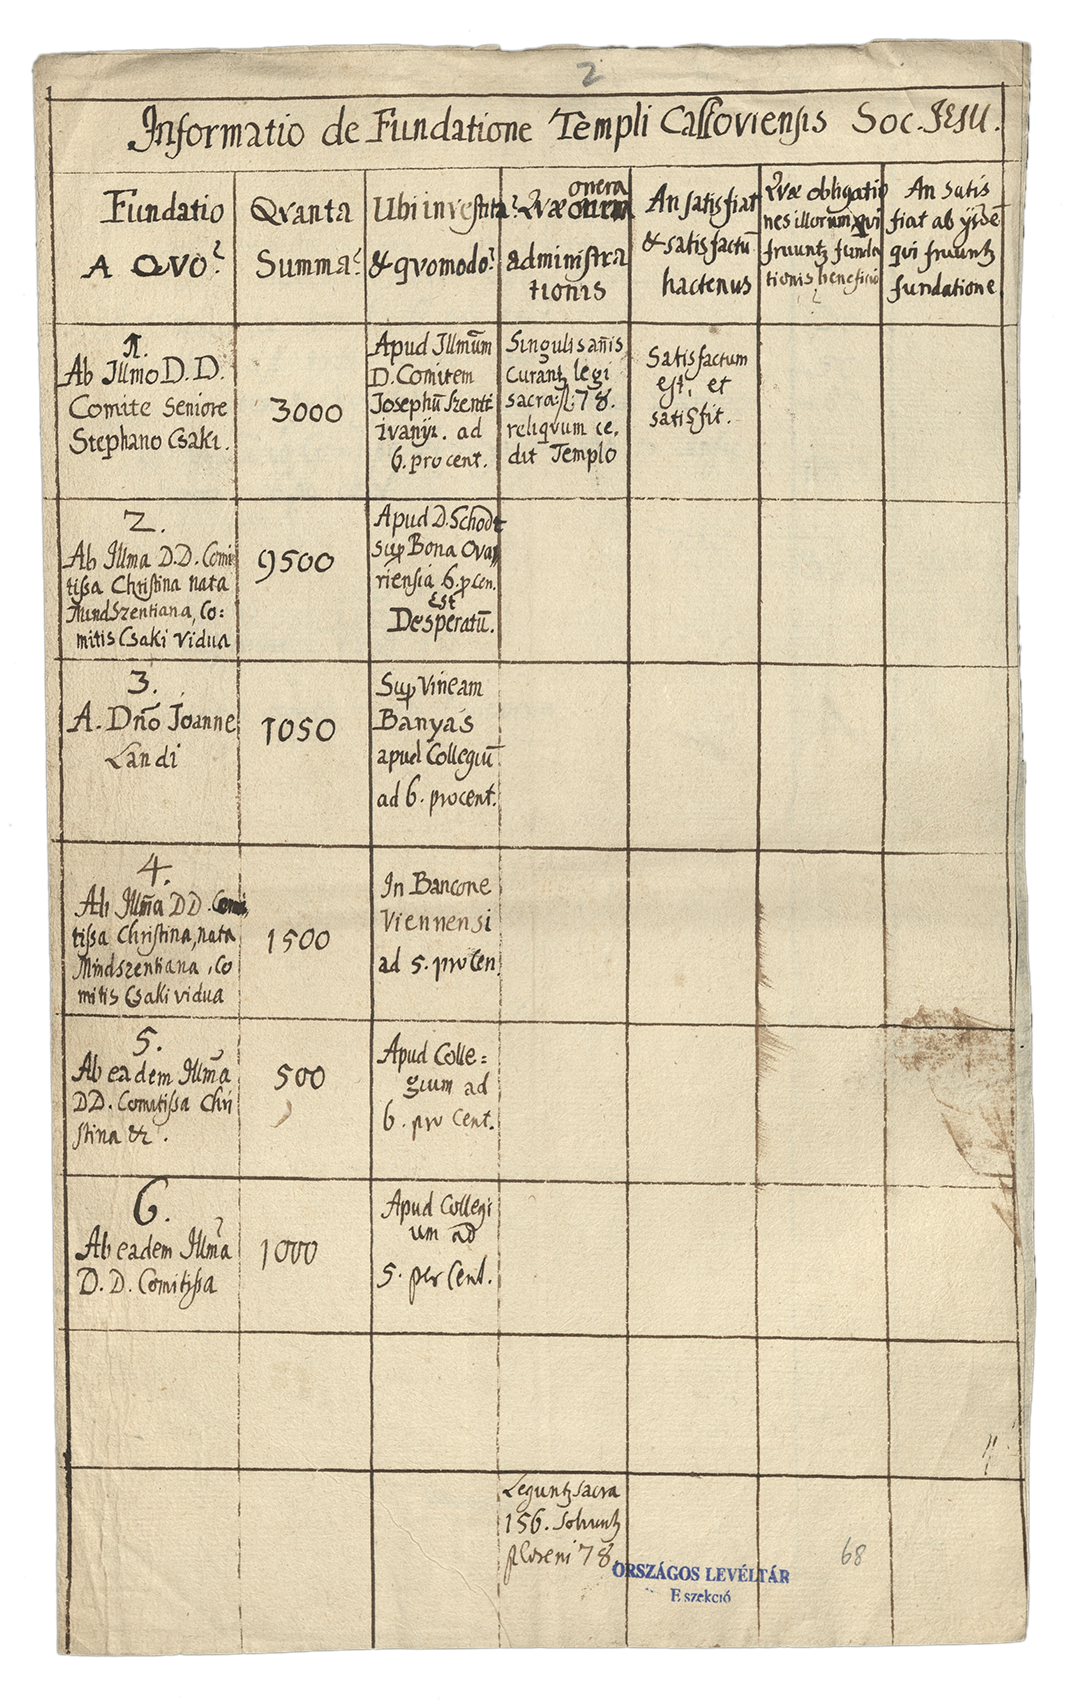 2
Informatio de Fundatione Templi Cassoviensis Soc. JESU.
Fundatio
A QVO?
Qvanta
Summa?
Ubi investita?
& qvomodo?
Qvæ onera
administra
tionis
An satisfiat
& satisfactū
hactenus
Qvæ obligatio
nes illorum qvi
fruuntʒ funda
tionis beneficio
?
An satis
fiat ab
qvi fruuntʒ
fundatione
1.
Ab Illmo D. D.
Comite Seniore
Stephano Csaki.
3000
Apud Illmūm
D. Comitem
Josephū Szentt
ivanyi. ad
6. pro cent.
Singulis añis
Curantʒ legi
sacra: fl: 78.
reliqvum ce,
dit Templo
Satisfactum
est, et
satisfit.
2.
Ab Illma D.D. Comi
tissa Christina nata
Mindszentiana, Co:
mitis Csaki vidua
9500
Apud D. Schodt
sup Bona Ova
riensia 6. p Cen.
Est
Desperatū.
3.
A. Dño Joanne
Landi
1050
Sup Vineam
Banyás
apud Collegiū
ad 6. procent.
4.
Ab Illm̄a DD. Comi,
tissa Christina, nata
Mindszentiana, Co
mitis Csaki vidua
1500
In Bancone
Viennensi
ad 5. pro Cen.
5.
Ab eadem Illm̄a
DD. Comitissa Chri
stina &c.
500
Apud Colle=
gium ad
6. pro Cent.
6.
Ab eadem Illm̄a
D. D. Comitissa
1000
Apud Collegi
um ad
5. per Cent.
Leguntʒ sacra
156. Solvuntʒ
floreni 78.
ORSZÁGOS LEVÉLTÁR
E szekció
68